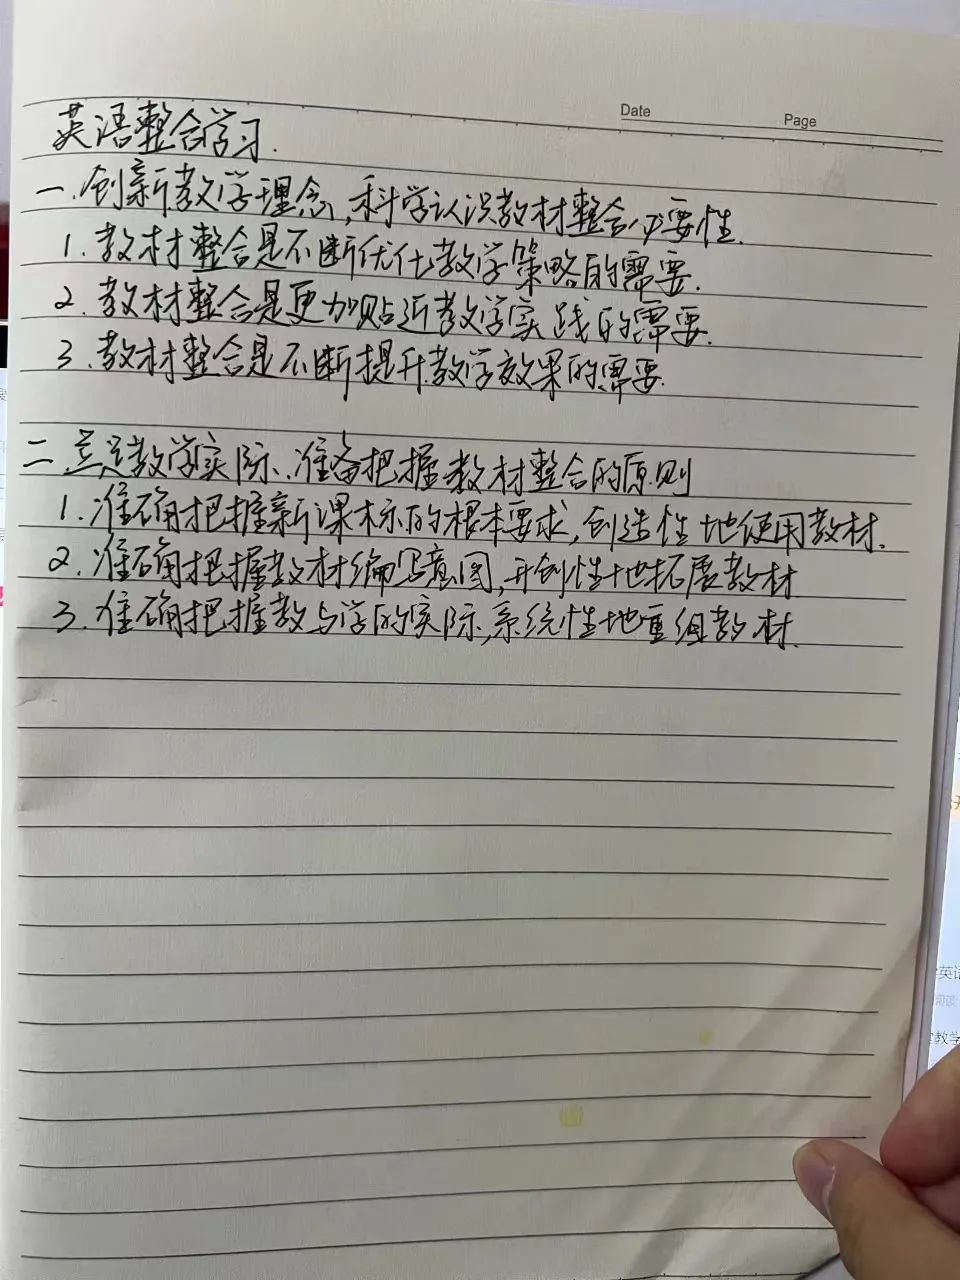 Date
Page
英语整合学习.
一.创新教学理念,科学认识教材整合必要性.
1.教材整合是不断优化教学策略的需要.
2.教材整合是更加贴近教学实践的需要.
3.教材整合是不断提升教学效果的需要.
二.立足教学实际.准备把握教材整合的原则
1.准确把握新课标的根本要求,创造性地使用教材.
2.准确把握教材编写意图,开创性地拓展教材
3.准确把握教与学的实际,系统性地重组教材.
英语
阅读
教学